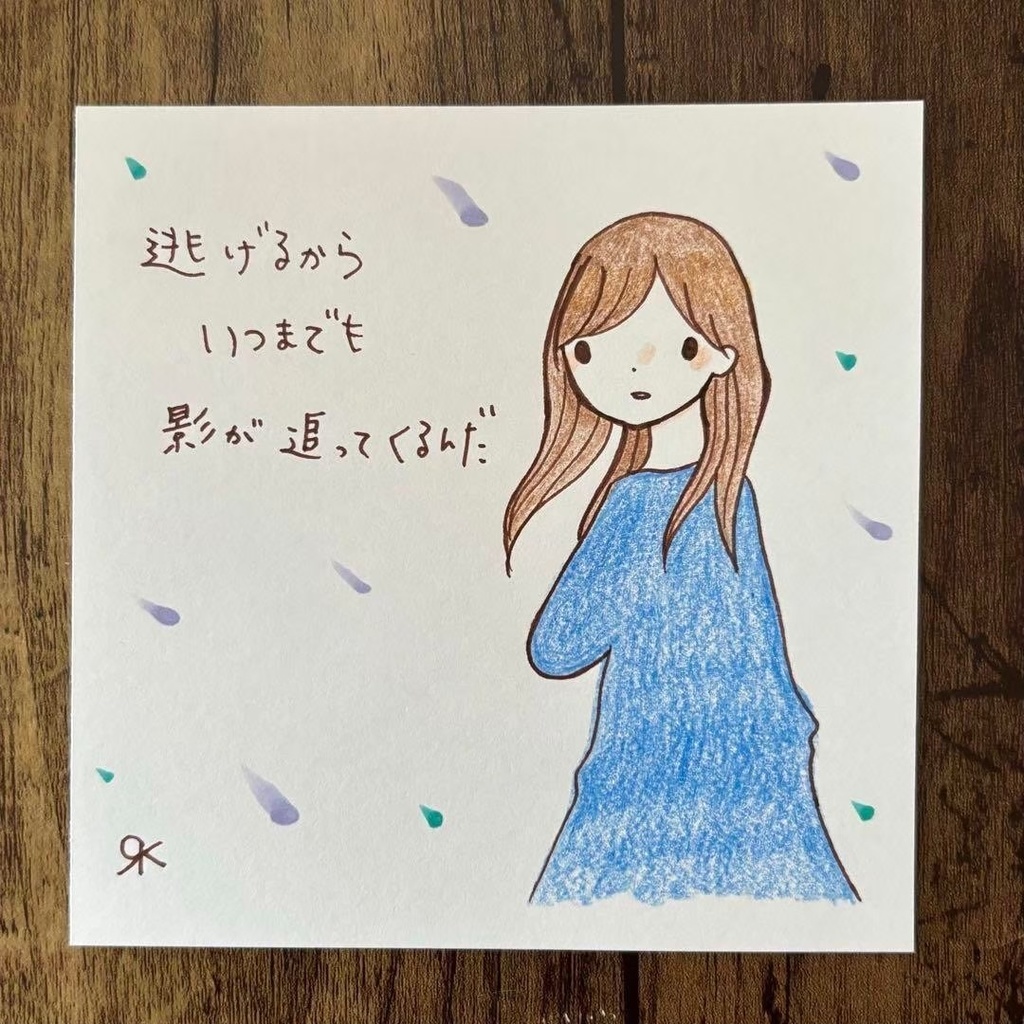 逃げるから
いつまでも
影が追ってくるんだ